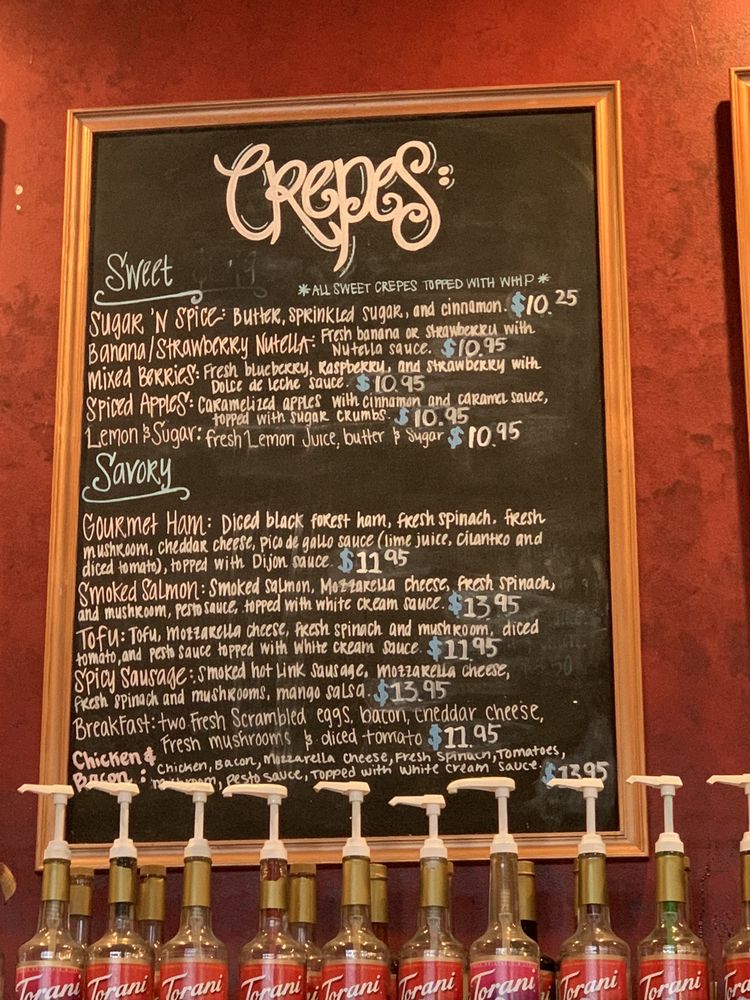 Crepes:
Sweet
*ALL SWEET CREPES TOPPED WITH WHIP*
Sugar 'N Spice: Butter, sprinkled sugar, and cinnamon. $10.25
Banana/Strawberry Nutella: Fresh banana or strawberry with
Nutella sauce. $10.95
Mixed Berries: Fresh blueberry, Raspberry, and strawberry with
Dolce de leche sauce. $10.95
Spiced Apples: Caramelized apples with cinnamon and caramel sauce,
topped with sugar crumbs. $10.95
Lemon & Sugar: Fresh Lemon Juice, butter & Sugar $10.95
Savory
Gourmet Ham: Diced black forest ham, fresh spinach, fresh
mushroom, cheddar cheese, pico de gallo sauce (lime juice, cilantro and
diced tomato), topped with Dijon sauce. $11.95
Smoked Salmon: Smoked salmon, Mozzarella cheese, fresh spinach,
and mushroom, pesto sauce, topped with white cream sauce. $13.95
Tofu: Tofu, mozzarella cheese, fresh spinach and mushroom, diced
tomato, and pesto sauce topped with white cream sauce. $11.95
Spicy Sausage: Smoked hot link sausage, mozzarella cheese,
fresh spinach and mushrooms, mango salsa. $13.95
Breakfast: two Fresh Scrambled eggs, bacon, cheddar cheese,
Fresh mushrooms & diced tomato $11.95
Chicken & Chicken, Bacon, Mozzarella Cheese, Fresh Spinach, Tomatoes,
Bacon: mushroom, Pesto Sauce, Topped with White Cream Sauce. $13.95
Torani Torani Torani Torani Torani Torani Torani Torani Torani